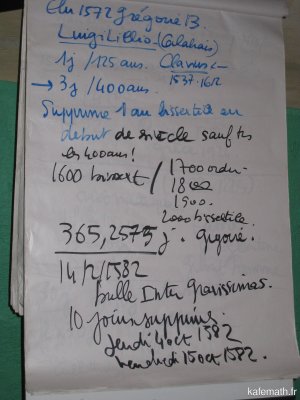 Elu 1572 Grégoire 13.
Luigi Lilio (Calabrais)
1j / 125 ans. Clavius
→ 3j / 400 ans. 1537-1612
Supprime 1 an bissextil en
début de siècle sauf ts
les 400 ans!
1600 bissext / 1700 ordin.
1800
1900.
2000 bissextile.
365,2575 j. Grégori.
14/2/1582
bulle Inter Gravissimas.
10 jours supprims.
jeudi 4 oct 1582
vendredi 15 oct 1582.
kafemath.fr